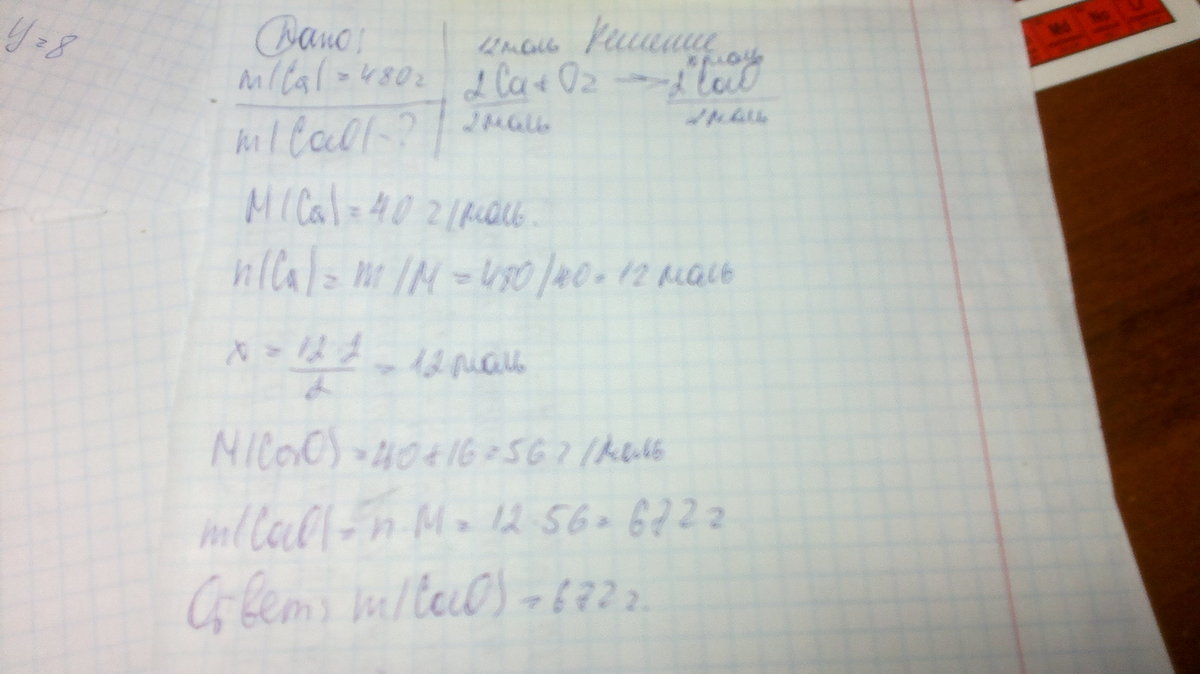 У=8
Дано:
m(Ca)=480г
m(CaO)-?
12моль Решение
x моль
2Ca+O2 → 2CaO
2моль 2моль
M(Ca)=40 г/моль.
n(Ca)= m/M =480/40=12 моль
x = 12·2/2 = 12 моль
M(CaO)=40+16=56 г/моль
m(CaO)=n·M= 12·56= 672 г
Ответ: m(CaO) =672 г.